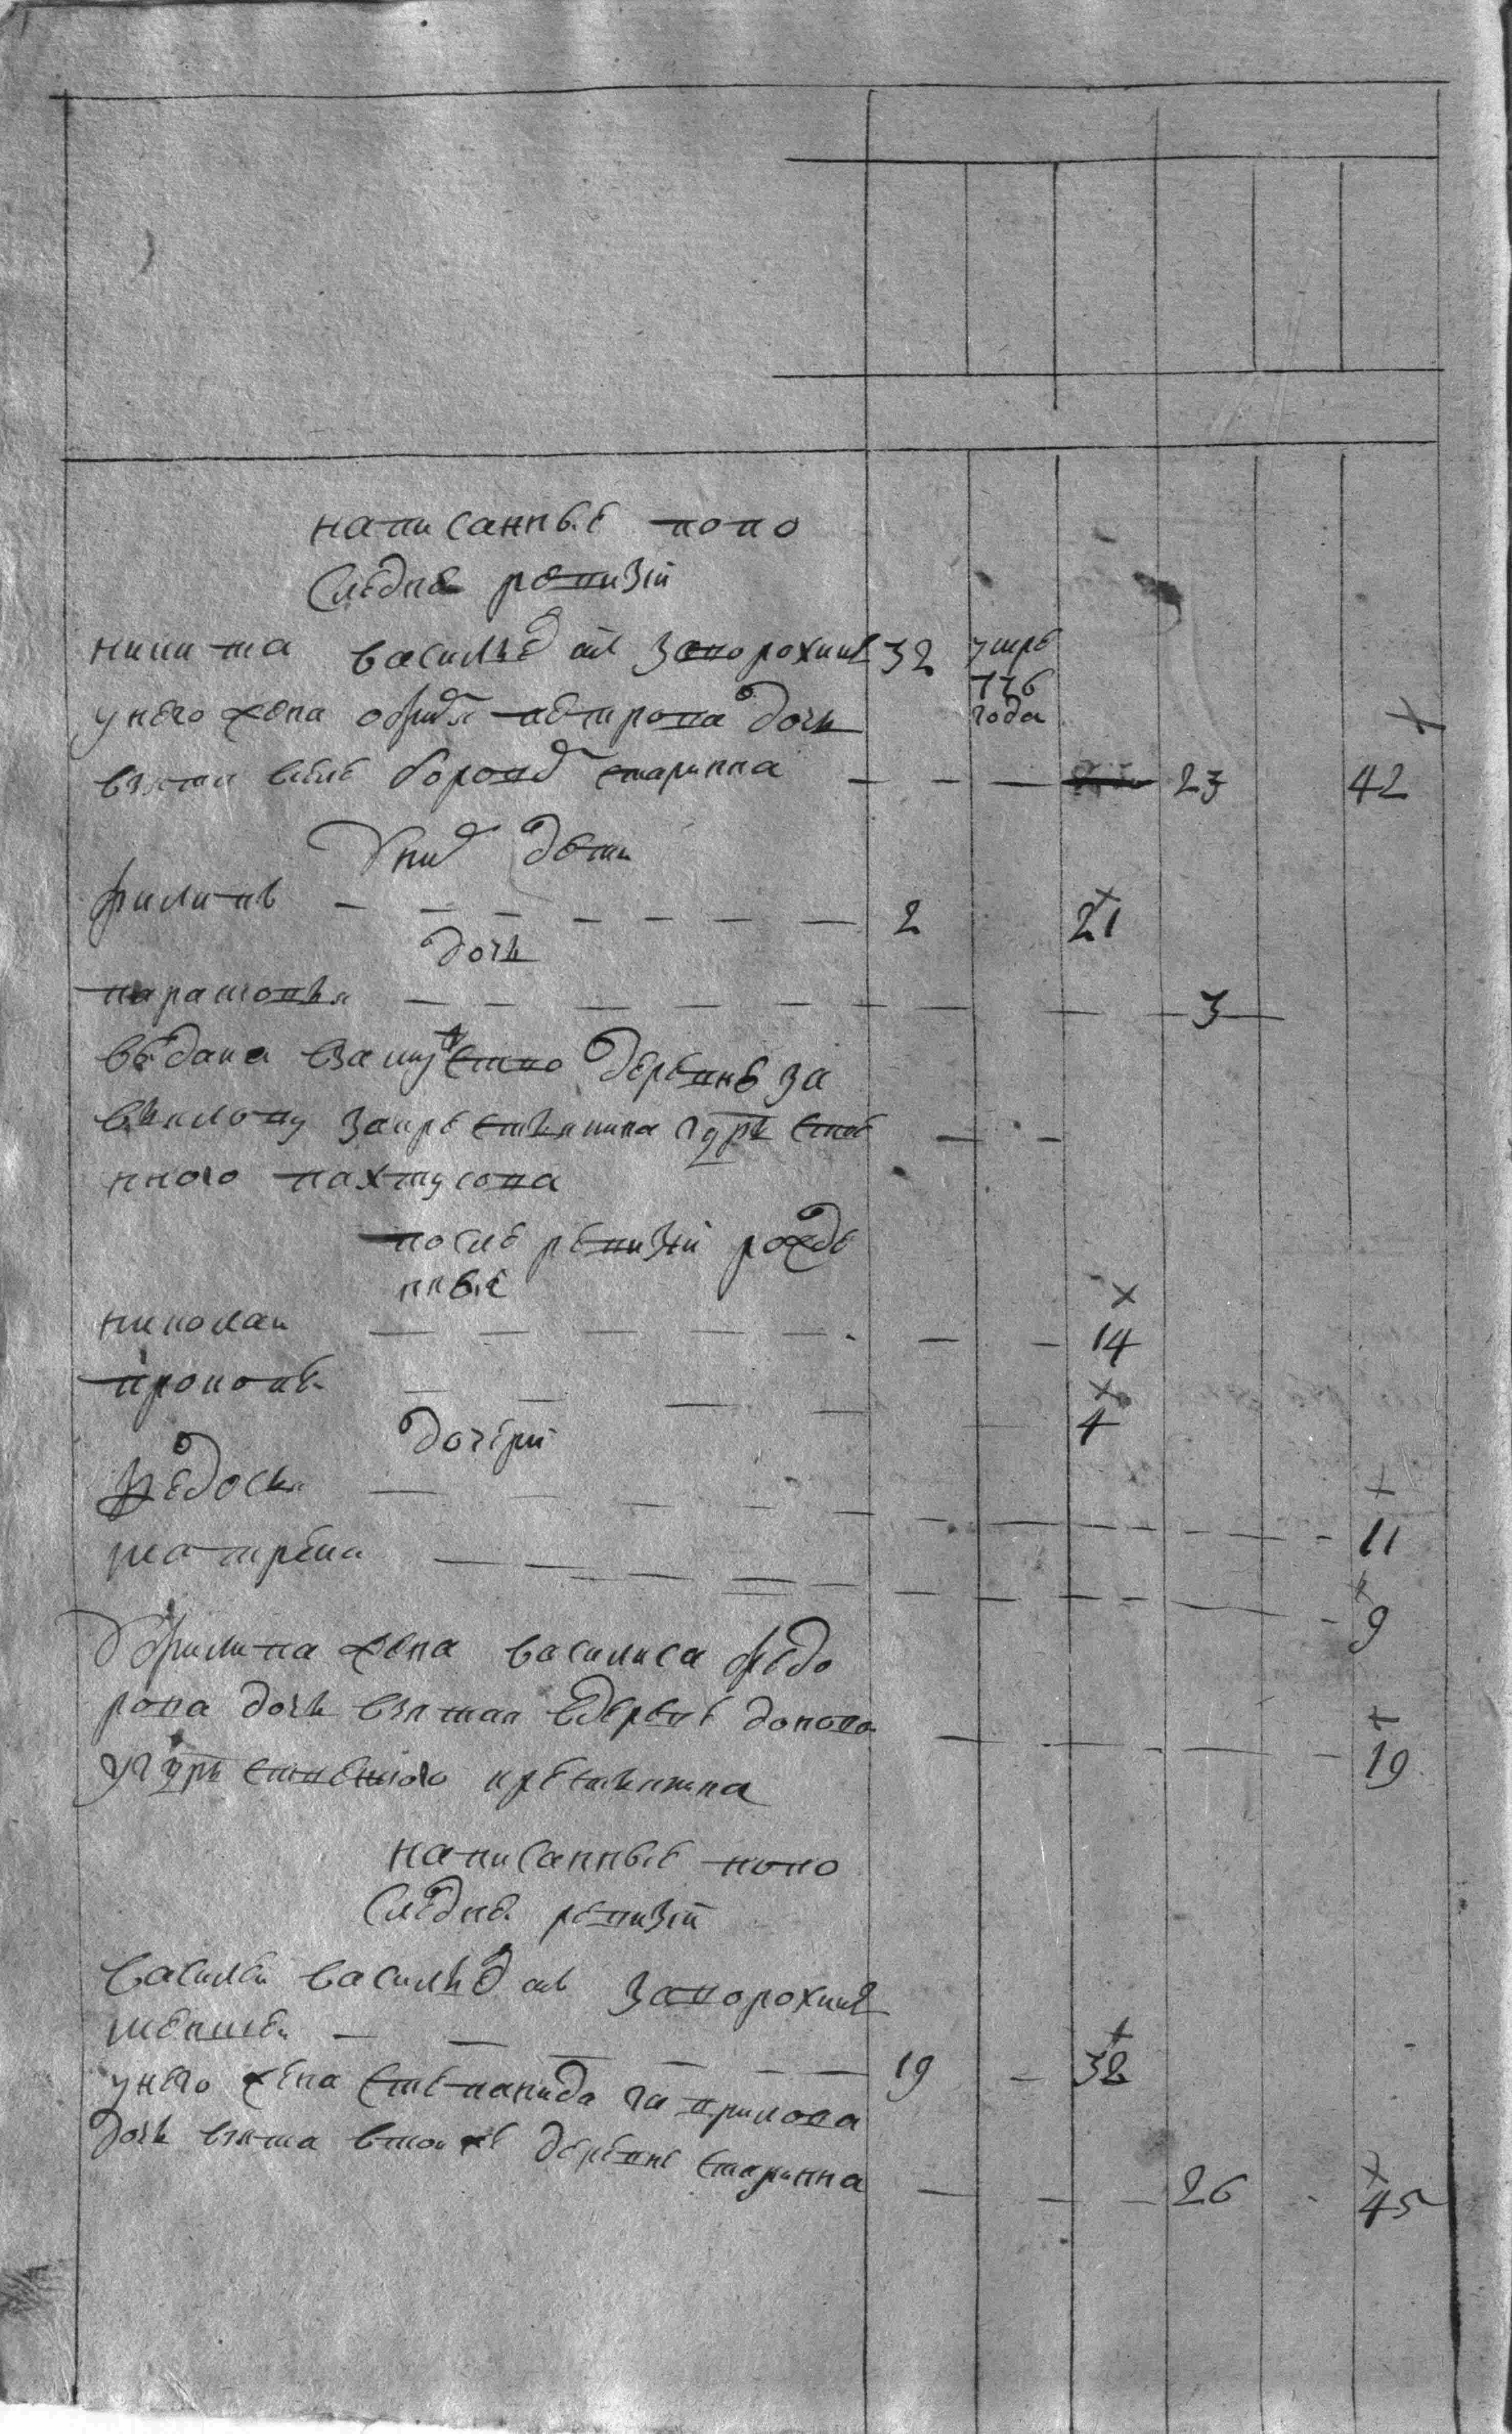 написанные попо
следне ревизiи
никита василье сн заворохин 32 умре
776
года
у него жена офимя петрова дочь
взята старинна 23 42
у них дети
филипъ 2 21
дочь
парасковья 3
выдана взамужство деревне за
крестьянина
нного пахтусова
после ревизiи рожде
нные
николаи 14
прокопе 4
дочери
федосья 11
матрена 9
у филипа жена василиса федо
рова дочь взятая вдеревне
крестьянина 19
написанные попо
следне ревизiи
василеи василье сн заворохин
меншеи 19 32
у него жена степанида гаврилова
дочь взята втои же деревне старинна 26 45